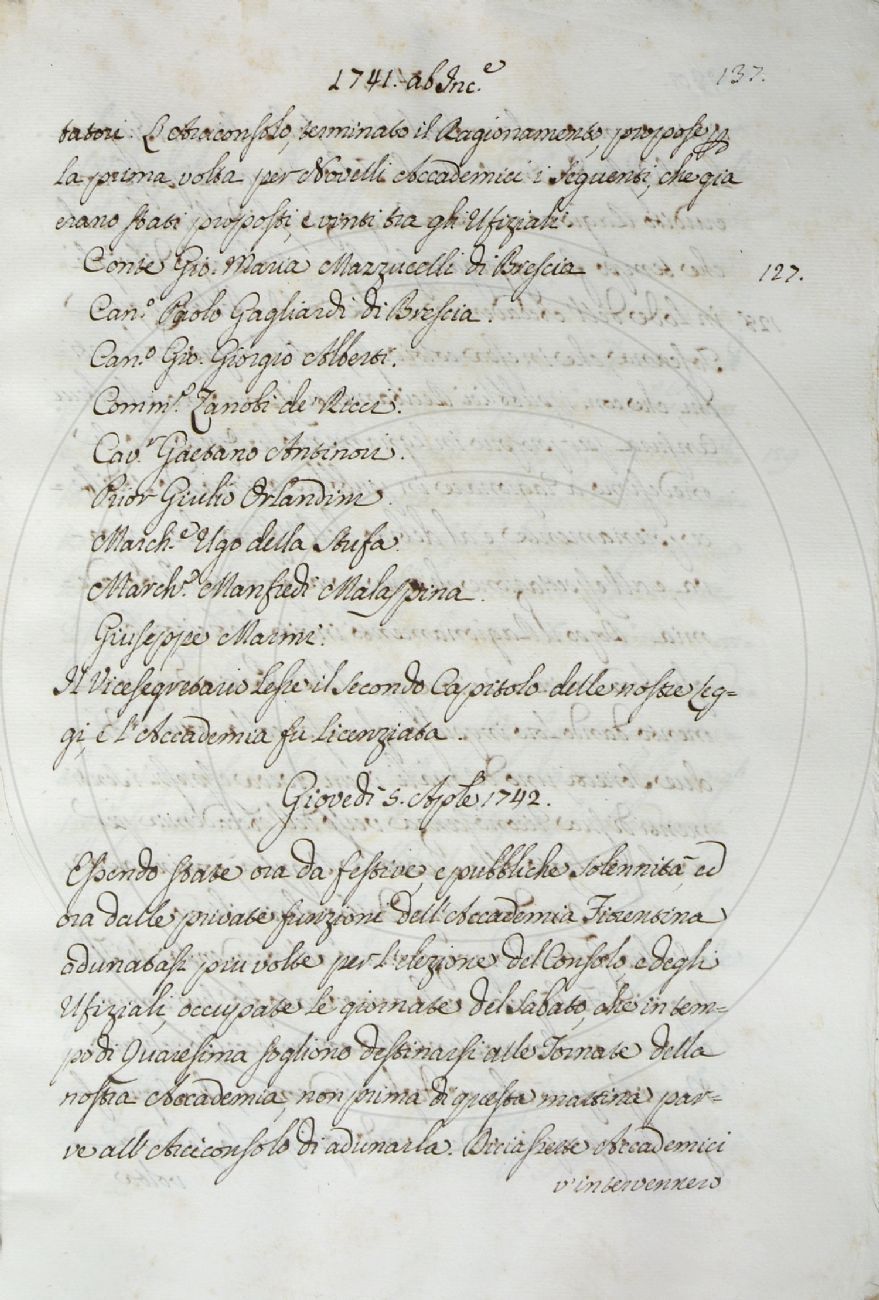 1741. ab Inc.e
137.
tatori. L'Arciconsolo, terminato il Ragionamento, propose p
la prima volta per Novelli Accademici i seguenti, che gia
erano stati proposti, e vinti tra gli Ufiziali
Conte Gio. Maria Mazzucelli di Brescia
127.
Can.o Paolo Gagliardi di Brescia.
Can.o Gio. Giorgio Alberti.
Comm.e Zanobi de' Ricci.
Cav.r Gaetano Antinori.
Prior Giulio Orlandini
March.e Ugo della Stufa.
March.e Manfredi Malaspina.
Giuseppe Marmi.
Il Vicesegretario lesse il secondo Capitolo delle nostre leg=
gi, e l'Accademia fu licenziata.
Giovedì 5. Aple 1742.
Essendo state ora da festive, e pubbliche solennità, ed
ora dalle private funzioni dell'Accademia Fiorentina
adunatasi più volte per l'elezione del Consolo, e degli
Ufiziali, occupate le giornate del Sabato, che in tem=
po di Quaresima sogliono destinarsi alle Tornate della
nostra Accademia, non prima di questa mattina par=
ve all'Arciconsolo di adunarla. Diciassette Accademici
v'intervennero